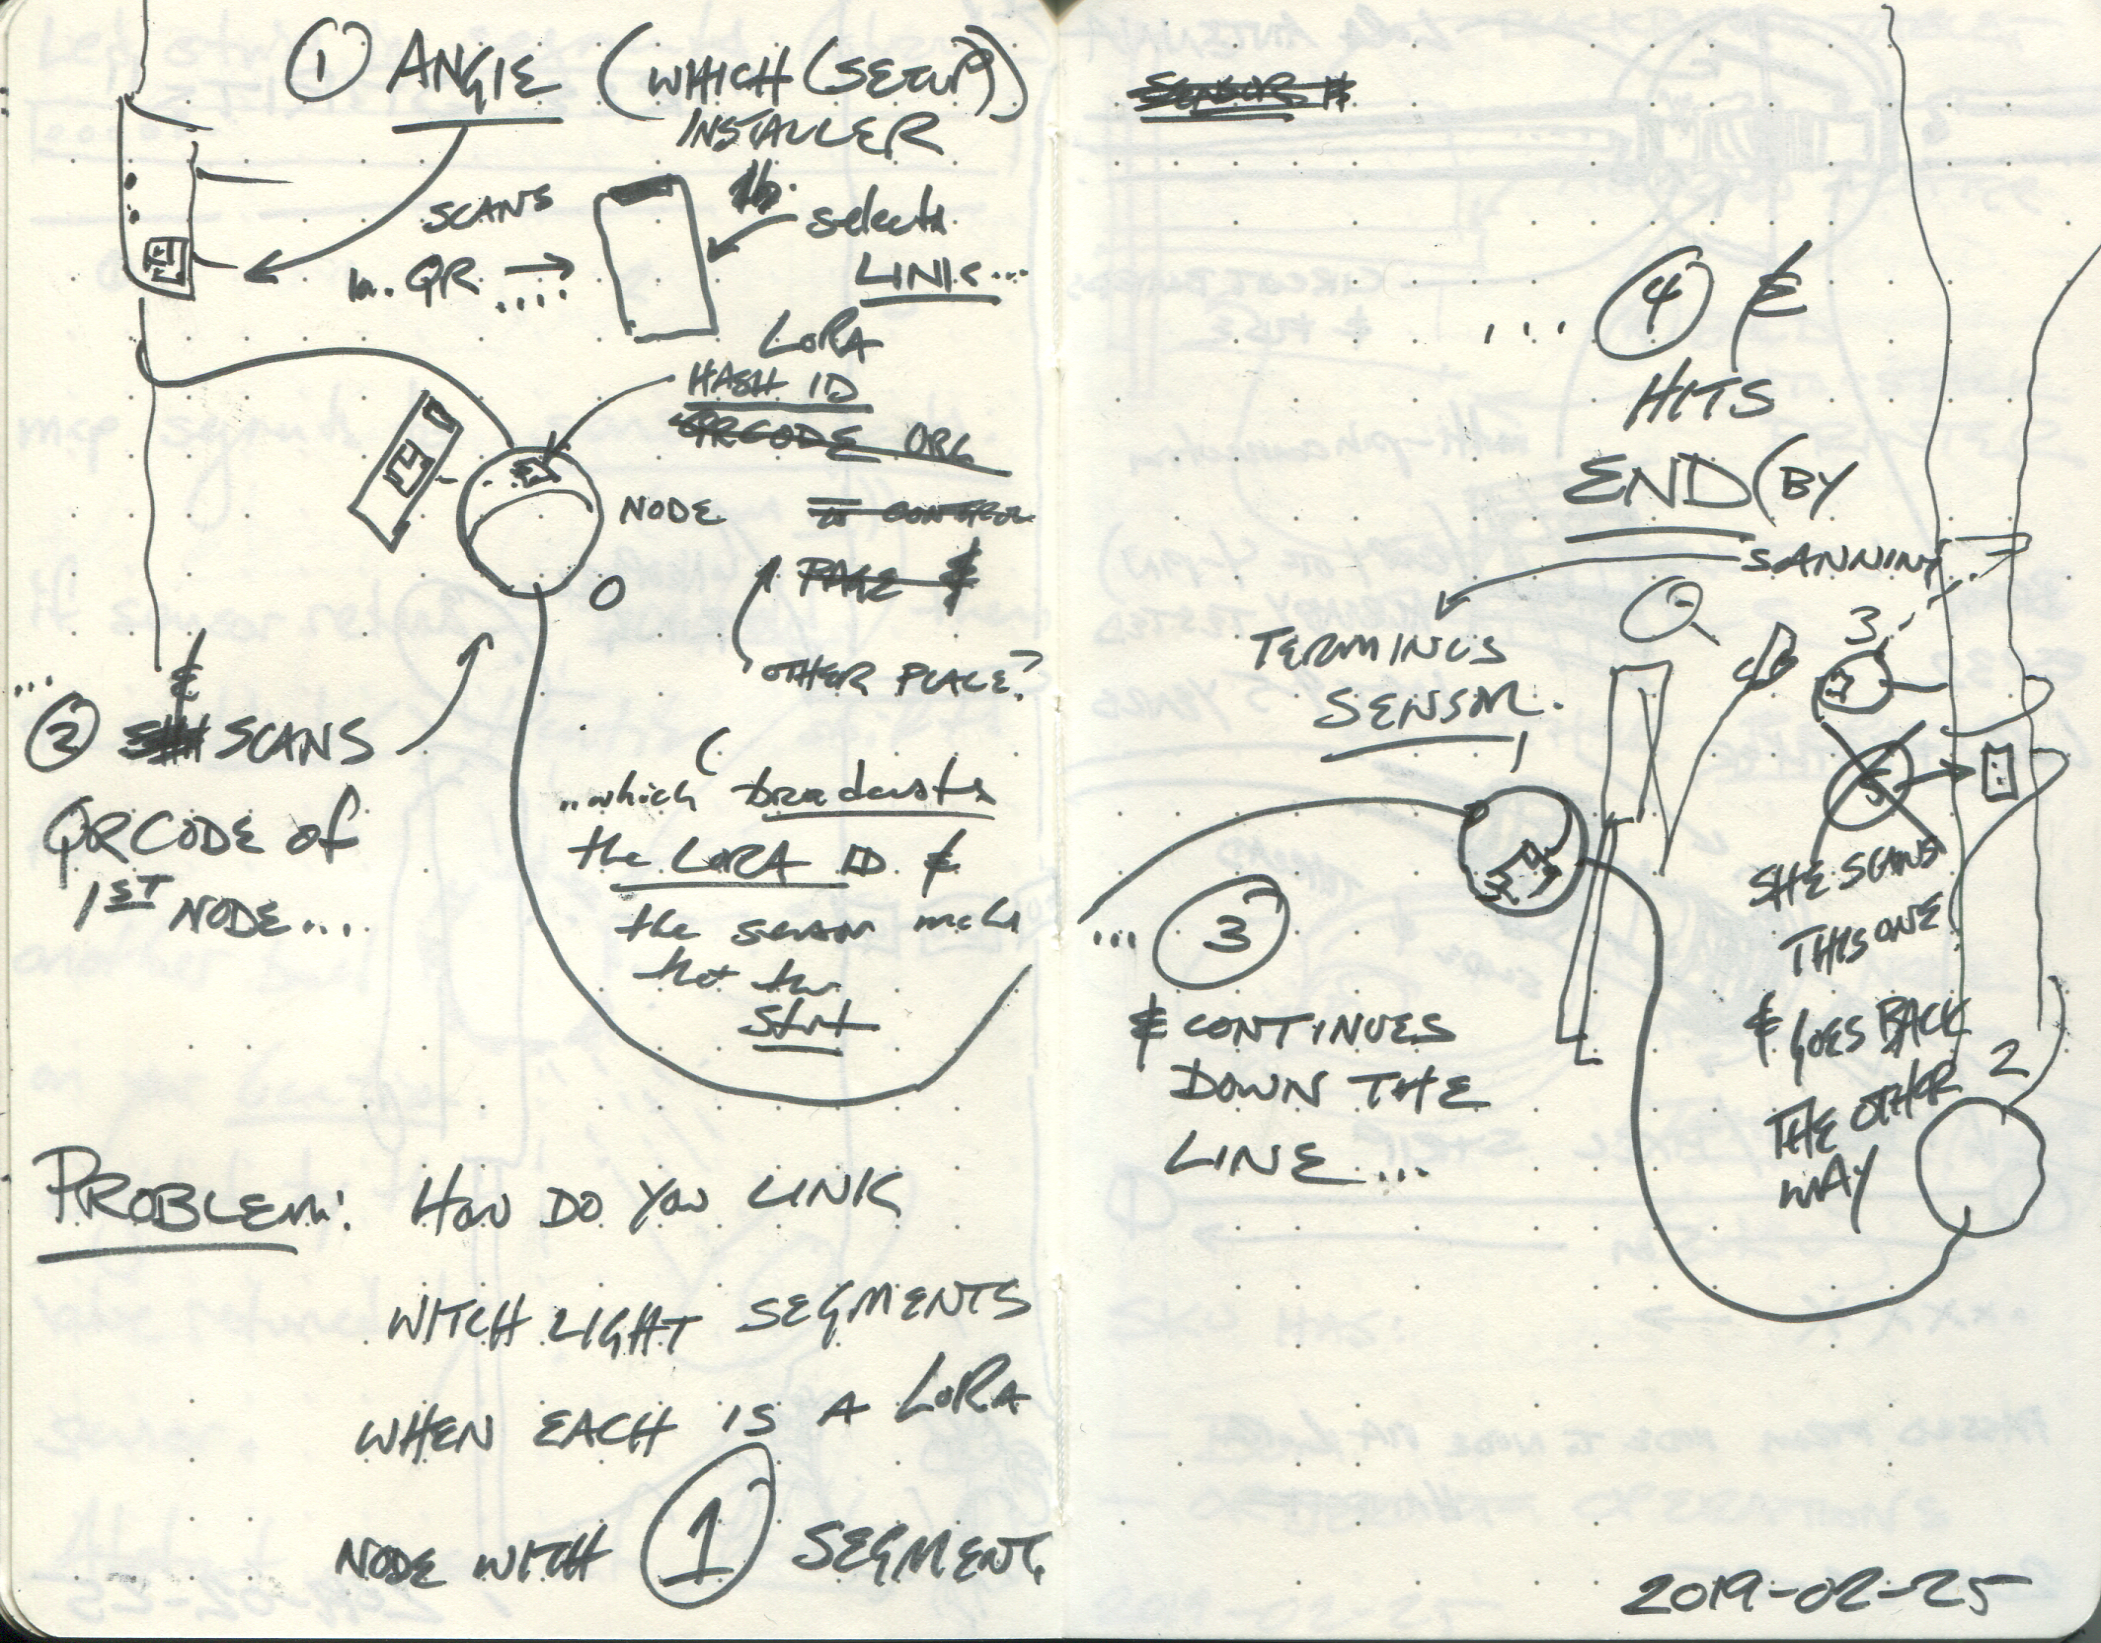 1 ANGIE (WHICH (SETUP))
INSTALLER
SCANS
1a. QR ....
1b. selects
LINK...
LORA
HASH ID
QRCODE ORG
NODE
CONTROL
PAGE &
0
OTHER PLACE?
...
2 & SCANS
QRCODE of
1ST NODE...
..which broadcasts
the LORA ID &
the
Start
PROBLEM: HOW DO YOU LINK
WITCH LIGHT SEGMENTS
WHEN EACH IS A LORA
NODE WITH 1 SEGMENT
SENSOR #
... 4 &
HITS
END (BY
SANNING
TERMINUS
SENSOR.
1
... 3
& CONTINUES
DOWN THE
LINE...
3
SHE SCANS
THIS ONE
& GOES BACK
THE OTHER
WAY
2
2019-02-25